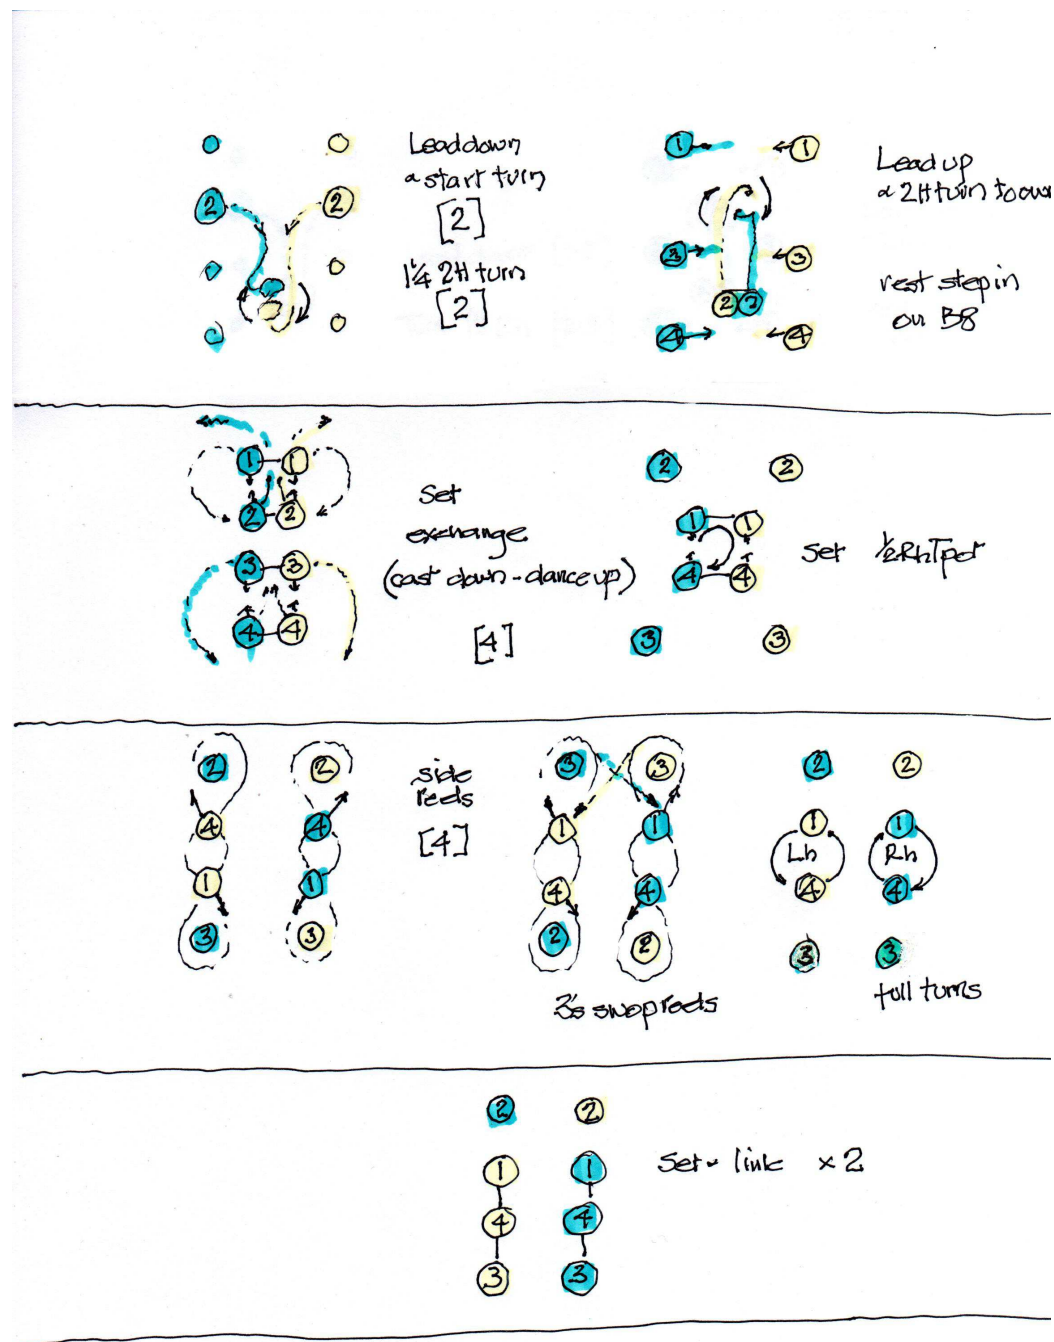 Lead down
& start turn
[2]
1¼ 2H turn
[2]
2 2
1 1
3 3
2 2
4 4
Lead up
& 2H turn to own
rest step in
on B8
1 1
2 2
3 3
4 4
Set
exchange
(cast down - dance up)
[4]
2 2
1 1
4 4
3 3
Set ½RhTpot
2 2
4 4
1 1
3 3
side
reels
[4]
3 3
1 1
4 4
2 2
3s swop reels
2 2
1 1
Lh Rh
4 4
3 3
full turns
2 2
1 1
4 4
3 3
Set & link x2